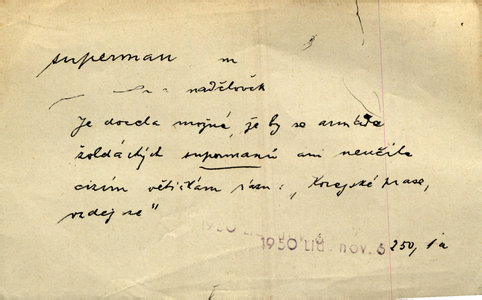 superman m
nadčlověk
Je docela možné, že by se armáda
žoldáckých supermanů ani neučila
cizím větičkám rázu: „Korejské prase,
vzdej se"
1950 Lid. nov. 6 250, 1a